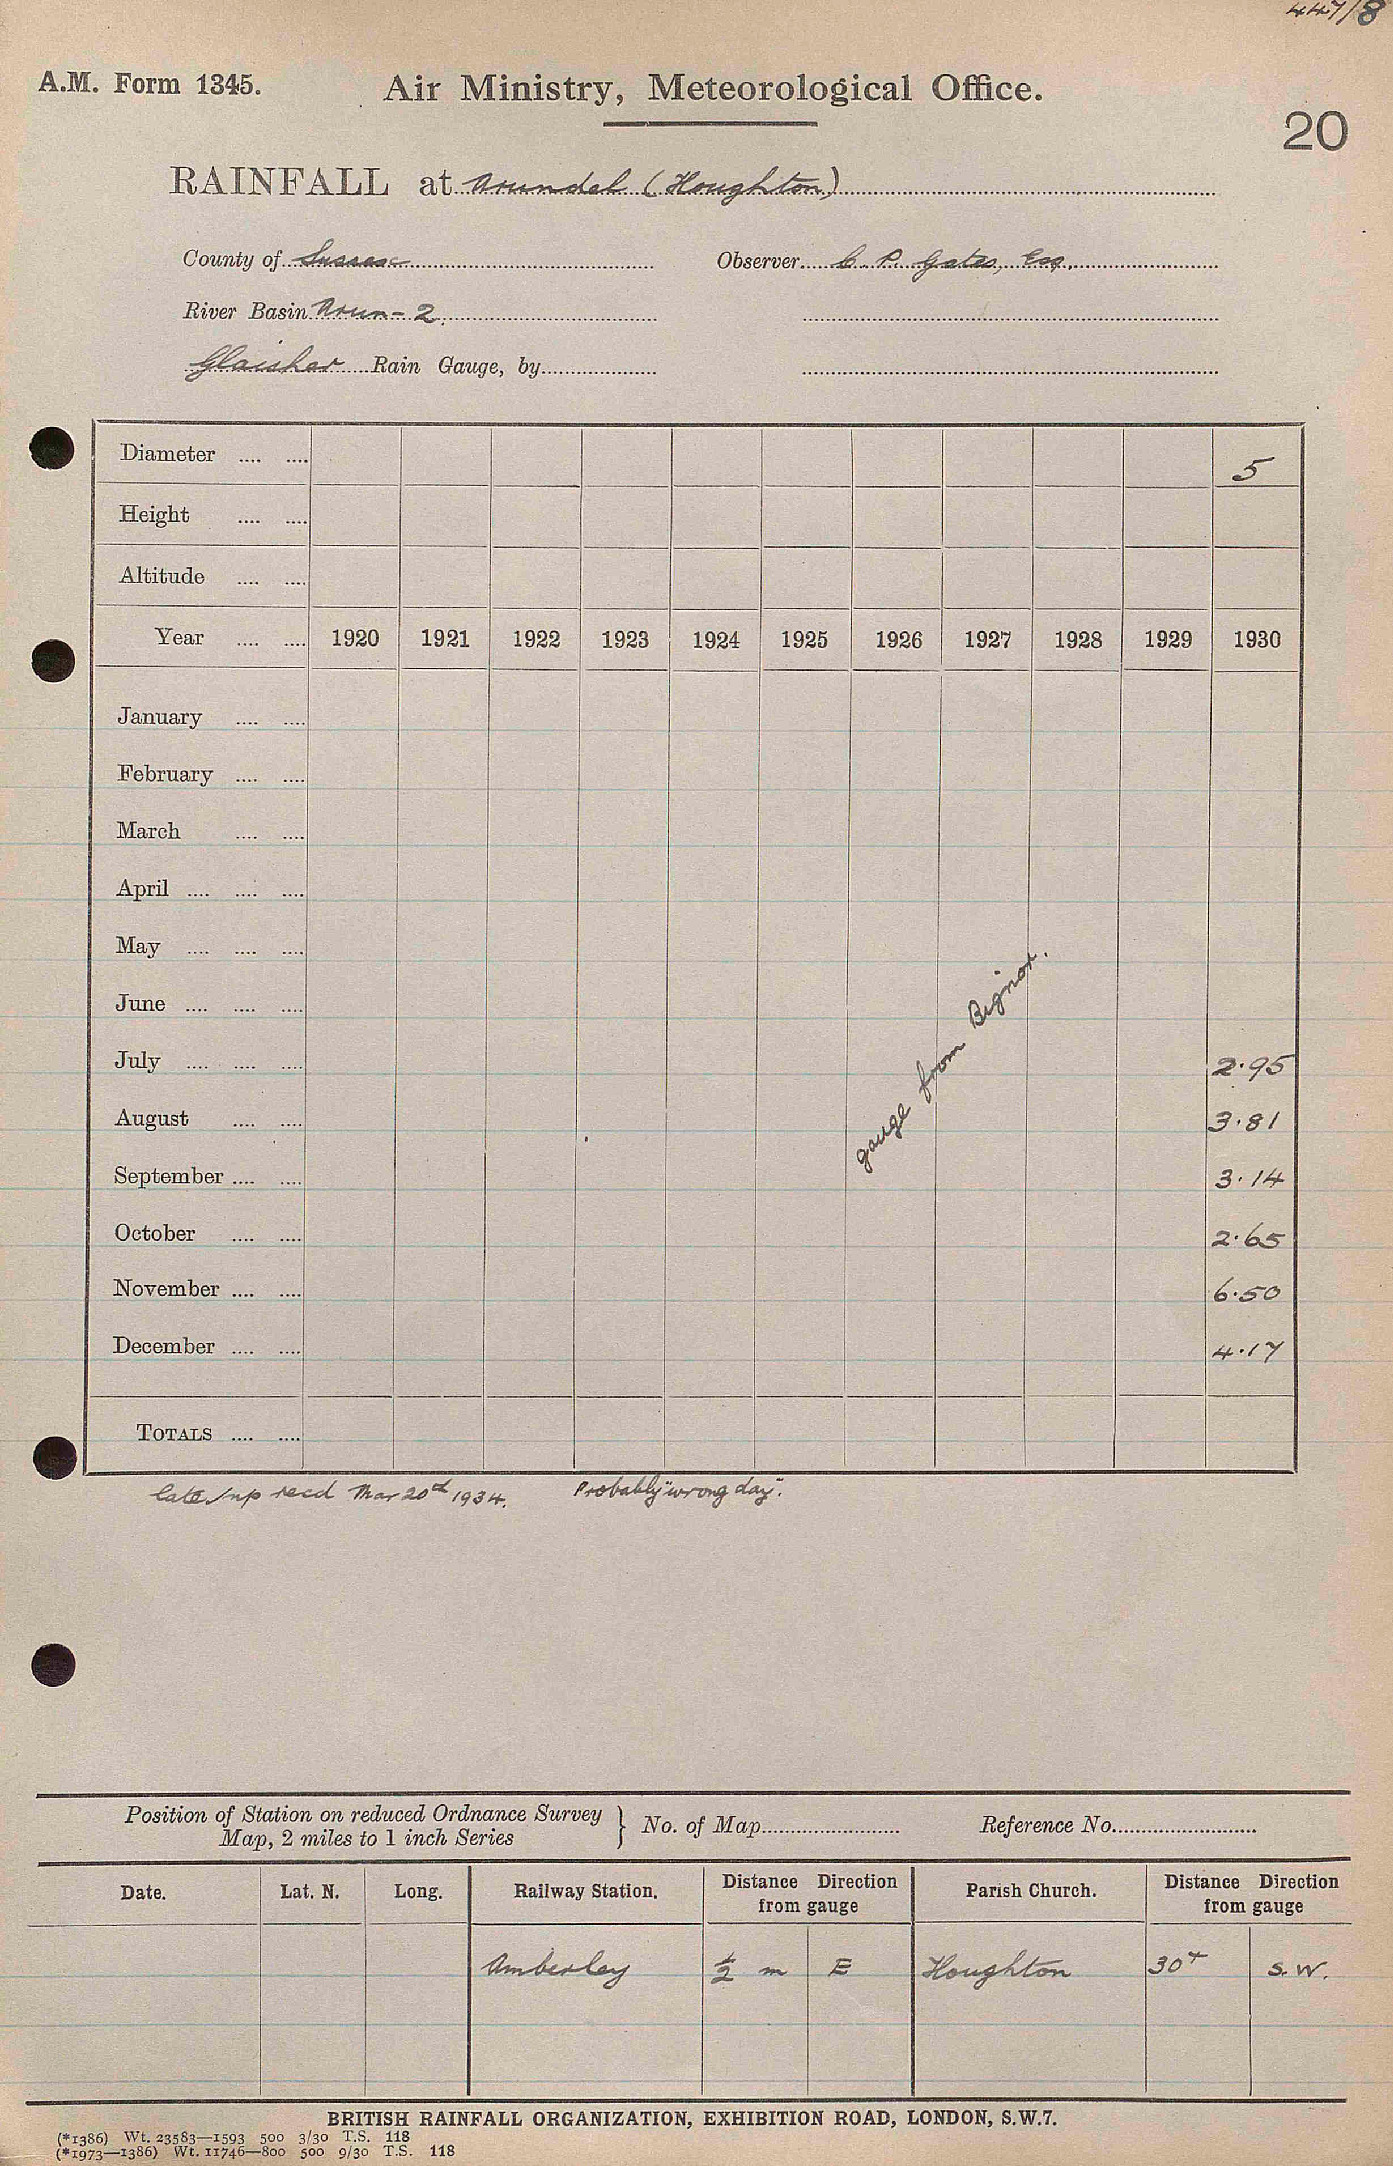 447/8
A.M. Form 1345. Air Ministry, Meteorological Office.
20
RAINFALL at Arundel (Houghton)
County of Sussex Observer C. P. Gates, Esq.
River Basin Arun - 2.
Glaisher Rain Gauge, by
Diameter .... .... 5
Height .... ....
Altitude .... ....
Year .... .... 1920 1921 1922 1923 1924 1925 1926 1927 1928 1929 1930
January .... ....
February .... ....
March .... ....
April .... .... ....
May .... .... ....
June .... .... ....
gauge from Bignor.
July .... .... .... 2.95
August .... .... 3.81
September .... .... 3.14
October .... .... 2.65
November .... .... 6.50
December .... .... 4.17
TOTALS .... ....
late recd Mar 20th 1934. Probably "wrong day".
Position of Station on reduced Ordnance Survey
Map, 2 miles to 1 inch Series } No. of Map Reference No.
Date. Lat. N. Long. Railway Station. Distance Direction from gauge Parish Church. Distance Direction from gauge
Amberley ½ m E Houghton 30 S.W.
BRITISH RAINFALL ORGANIZATION, EXHIBITION ROAD, LONDON, S.W.7.
(*1386) Wt. 23583—1593 500 3/30 T.S. 118
(*1973—1386) Wt. 11746—800 500 9/30 T.S. 118